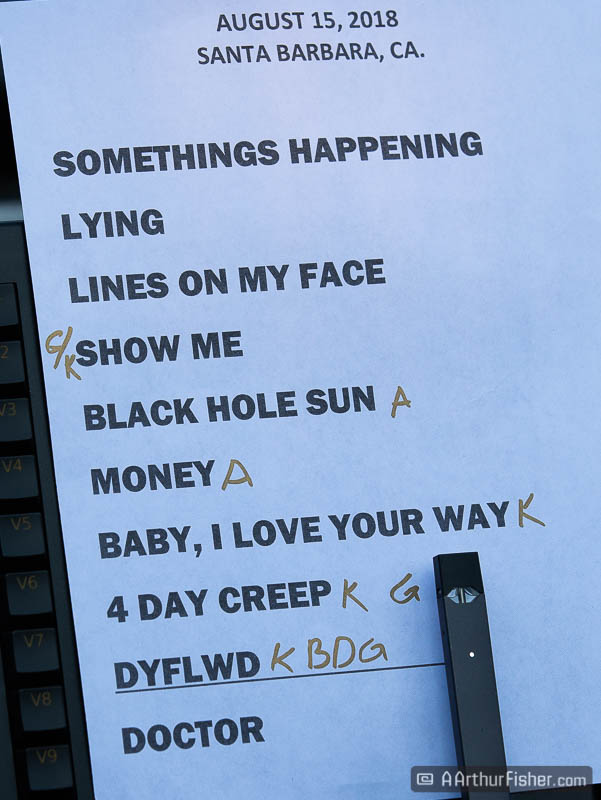 AUGUST 15, 2018
SANTA BARBARA, CA.
SOMETHINGS HAPPENING
LYING
LINES ON MY FACE
G/K SHOW ME
BLACK HOLE SUN A
MONEY A
BABY, I LOVE YOUR WAY K
4 DAY CREEP K G
DYFLWD K BDG
DOCTOR
V3
V4
V5
V6
V7
V8
V9
© AArthurFisher.com